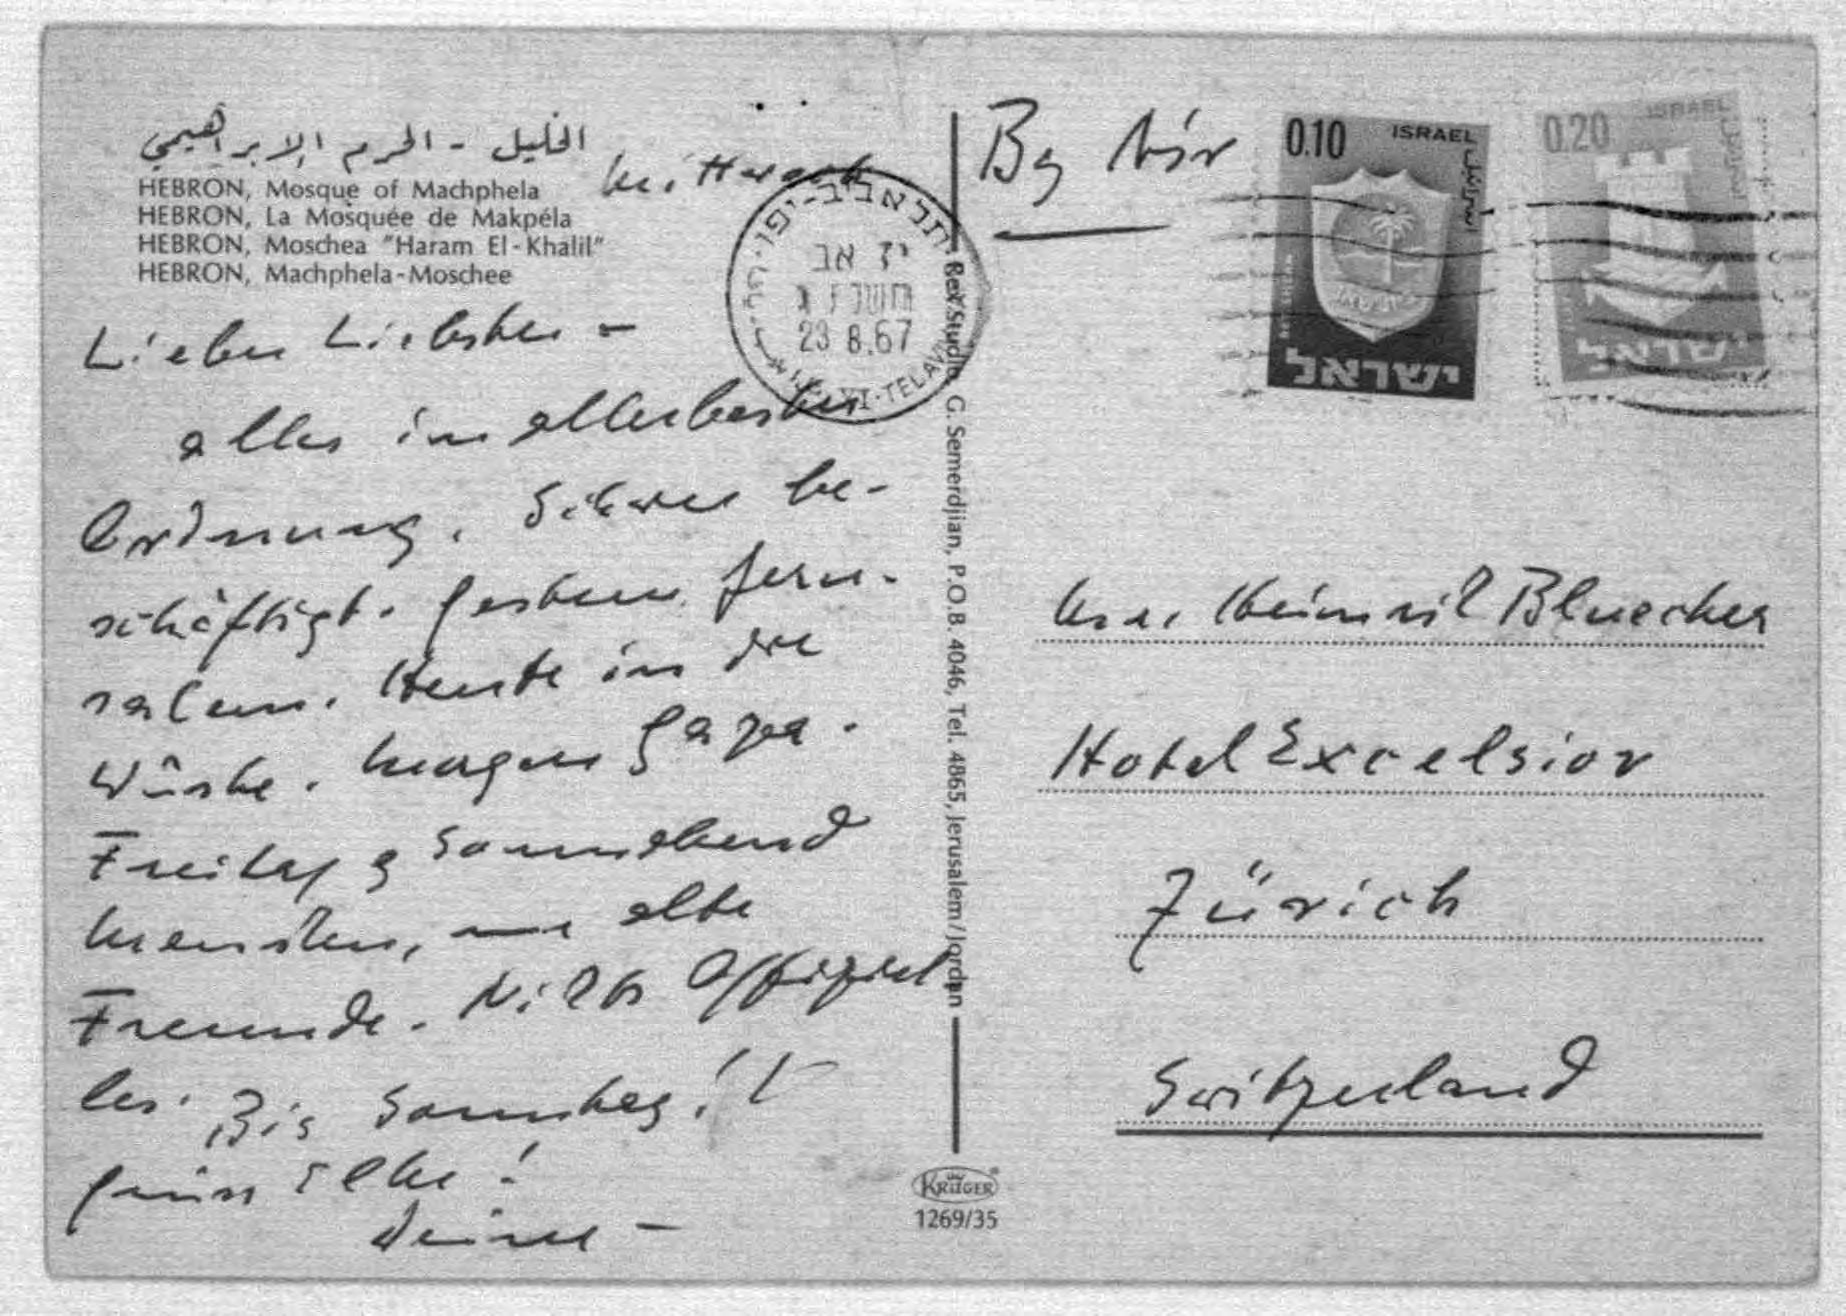 الخليل - الحرم الابراهيمي
HEBRON, Mosque of Machphela
HEBRON, La Mosquée de Makpéla
HEBRON, Moschea "Haram El-Khalil"
HEBRON, Machphela-Moschee
Mittwoch
Lieber Liebster –
alles in allerbester
Ordnung. Schwer be-
schäftigt. Gestern Jeru-
salem. Heute in die
Wüste. Morgen Gaza.
Freitag & Sonnabend
Menschen, nur alte
Freunde. Nichts Offiziel
les. Bis Sonntag!
Grüss Elke!
Deine –
תל אביב-יפו
יז אב
תשכז
23 8.67
TELAVIV
Rex Studio G. Semerdjian, P.O.B. 4046, Tel. 4865, Jerusalem/Jordan
KRÜGER
1269/35
By Air
0.10 ISRAEL
ישראל
0.20 ISRAEL
ישראל
Mr. Heinrich Bluecher
Hotel Excelsior
Zürich
Switzerland